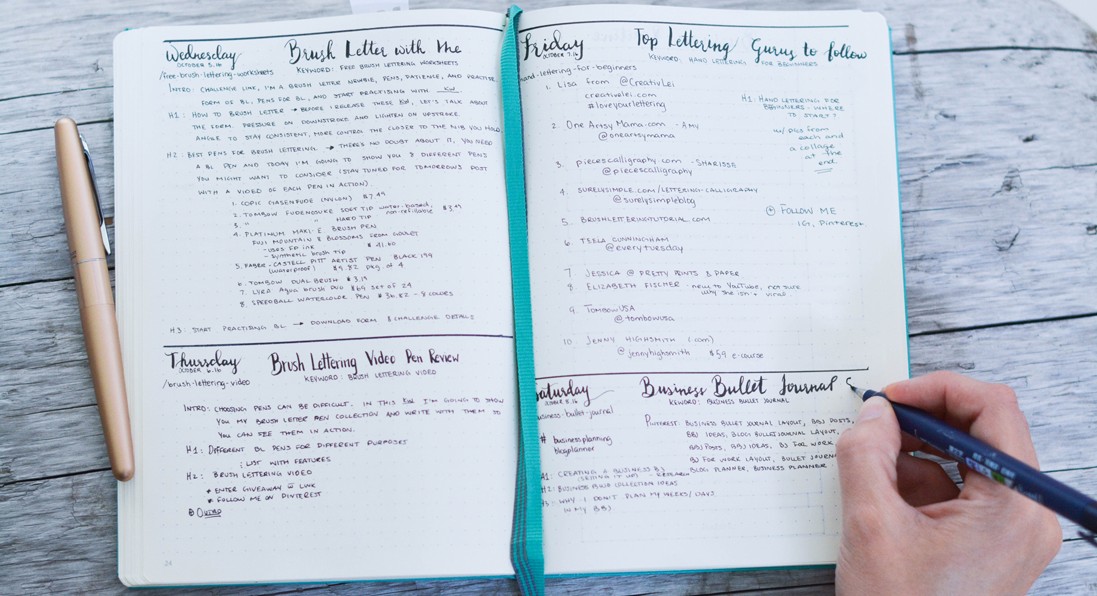 Wednesday
OCTOBER 5.16
Brush Letter with Me
KEYWORD: FREE BRUSH LETTERING WORKSHEETS
/free-brush-lettering-worksheets
INTRO: CHALLENGE LINK, I'M A BRUSH LETTER NEWBIE, PENS, PATIENCE, AND PRACTISE
FORM OF BL, PENS FOR BL, AND START PRACTISING WITH KW
H1: HOW TO BRUSH LETTER → BEFORE I RELEASE THESE KW, LET'S TALK ABOUT
THE FORM. PRESSURE ON DOWNSTROKE AND LIGHTEN ON UPSTROKE.
ANGLE TO STAY CONSISTENT, MORE CONTROL THE CLOSER TO THE NIB YOU HOLD
H2: BEST PENS FOR BRUSH LETTERING → THERE'S NO DOUBT ABOUT IT, YOU NEED
A BL PEN AND TODAY I'M GOING TO SHOW YOU 8 DIFFERENT PENS
YOU MIGHT WANT TO CONSIDER (STAY TUNED FOR TOMORROWS POST
WITH A VIDEO OF EACH PEN IN ACTION)
1. COPIC GASENFUDE (NYLON) $7.49
2. TOMBOW FUDENOSUKE SOFT TIP water-based, non-refillable $3.49
3. " " HARD TIP
4. PLATINUM MAKI-E BRUSH PEN
FUJI MOUNTAIN & BLOSSOMS FROM GOULET
- uses FP ink $41.60
- synthetic brush tip
5. FABER-CASTELL PITT ARTIST PEN BLACK 199
(waterproof) pkg. of 4
6. TOMBOW DUAL BRUSH $3.19
7. LYRA Aqua brush DUO $64 SET OF 24
8. SPEEDBALL WATERCOLOR PEN $36.82 - 8 COLORS
H3: START PRACTISING BL → DOWNLOAD FORM & CHALLENGE DETAILS
Thursday
OCTOBER 6.16
Brush Lettering Video Pen Review
KEYWORD: BRUSH LETTERING VIDEO
/brush-lettering-video
INTRO: CHOOSING PENS CAN BE DIFFICULT. IN THIS KW I'M GOING TO SHOW
YOU MY BRUSH LETTER PEN COLLECTION AND WRITE WITH THEM SO
YOU CAN SEE THEM IN ACTION.
H1: DIFFERENT BL PENS FOR DIFFERENT PURPOSES
: LIST WITH FEATURES
H2: BRUSH LETTERING VIDEO
* ENTER GIVEAWAY LINK
* FOLLOW ME ON PINTEREST
24
Friday
OCTOBER 7.16
Top Lettering Gurus to follow
KEYWORD: HAND LETTERING FOR BEGINNERS
hand-lettering-for-beginners
1. Lisa from @CreativLei
creativlei.com
#loveyourlettering
2 One Artsy Mama.com - Amy
@oneartsymama
3. piecescalligraphy.com - SHARISSE
@piecescalligraphy
4. SURELYSIMPLE.COM/LETTERING-CALLIGRAPHY
@surelysimpleblog
5. BRUSHLETTERINGTUTORIAL.COM
6. TEELA CUNNINGHAM
@everytuesday
7 JESSICA @ PRETTY PRINTS & PAPER
8 ELIZABETH FISCHER - new to YouTube, not sure
why she isn't viral
9. TOMBOWUSA
@tombowusa
10. JENNY HIGHSMITH (.com)
@jennyhighsmith $59 e-course
H1: HAND LETTERING FOR
BEGINNERS - WHERE
TO START?
w/ pics from
each and
a collage
at the
end.
FOLLOW ME
IG, Pinterest
Saturday
OCTOBER 8.16
Business Bullet Journal S
KEYWORD: BUSINESS BULLET JOURNAL
business-bullet-journal
# businessplanning
blogplanner
PINTEREST: BUSINESS BULLET JOURNAL LAYOUT, BBJ POSTS,
BBJ IDEAS, BLOG BULLET JOURNAL LAYOUT,
BBJ POSTS, BBJ IDEAS, BJ FOR WORK,
BJ FOR WORK LAYOUT, BULLET JOURN
BLOG PLANNER, BUSINESS PLANNER
H1: CREATING A BUSINESS BJ
(SETTING IT UP) - RESEARCH
H2: BUSINESS COLLECTION IDEAS
H3: WHY I DON'T PLAN MY WEEKS/DAYS
IN MY BBJ